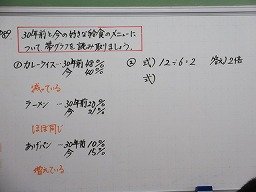 P89
30年前と今の好きな給食のメニューに
ついて帯グラフを読み取りましょう。
①カレーライス…30年前 48%
今 40%
減っている
ラーメン…30年前 20%
今 21%
ほぼ同じ
あげパン…30年前 10%
今 15%
増えている
② 式) 12÷6=2 答え) 2倍
式)